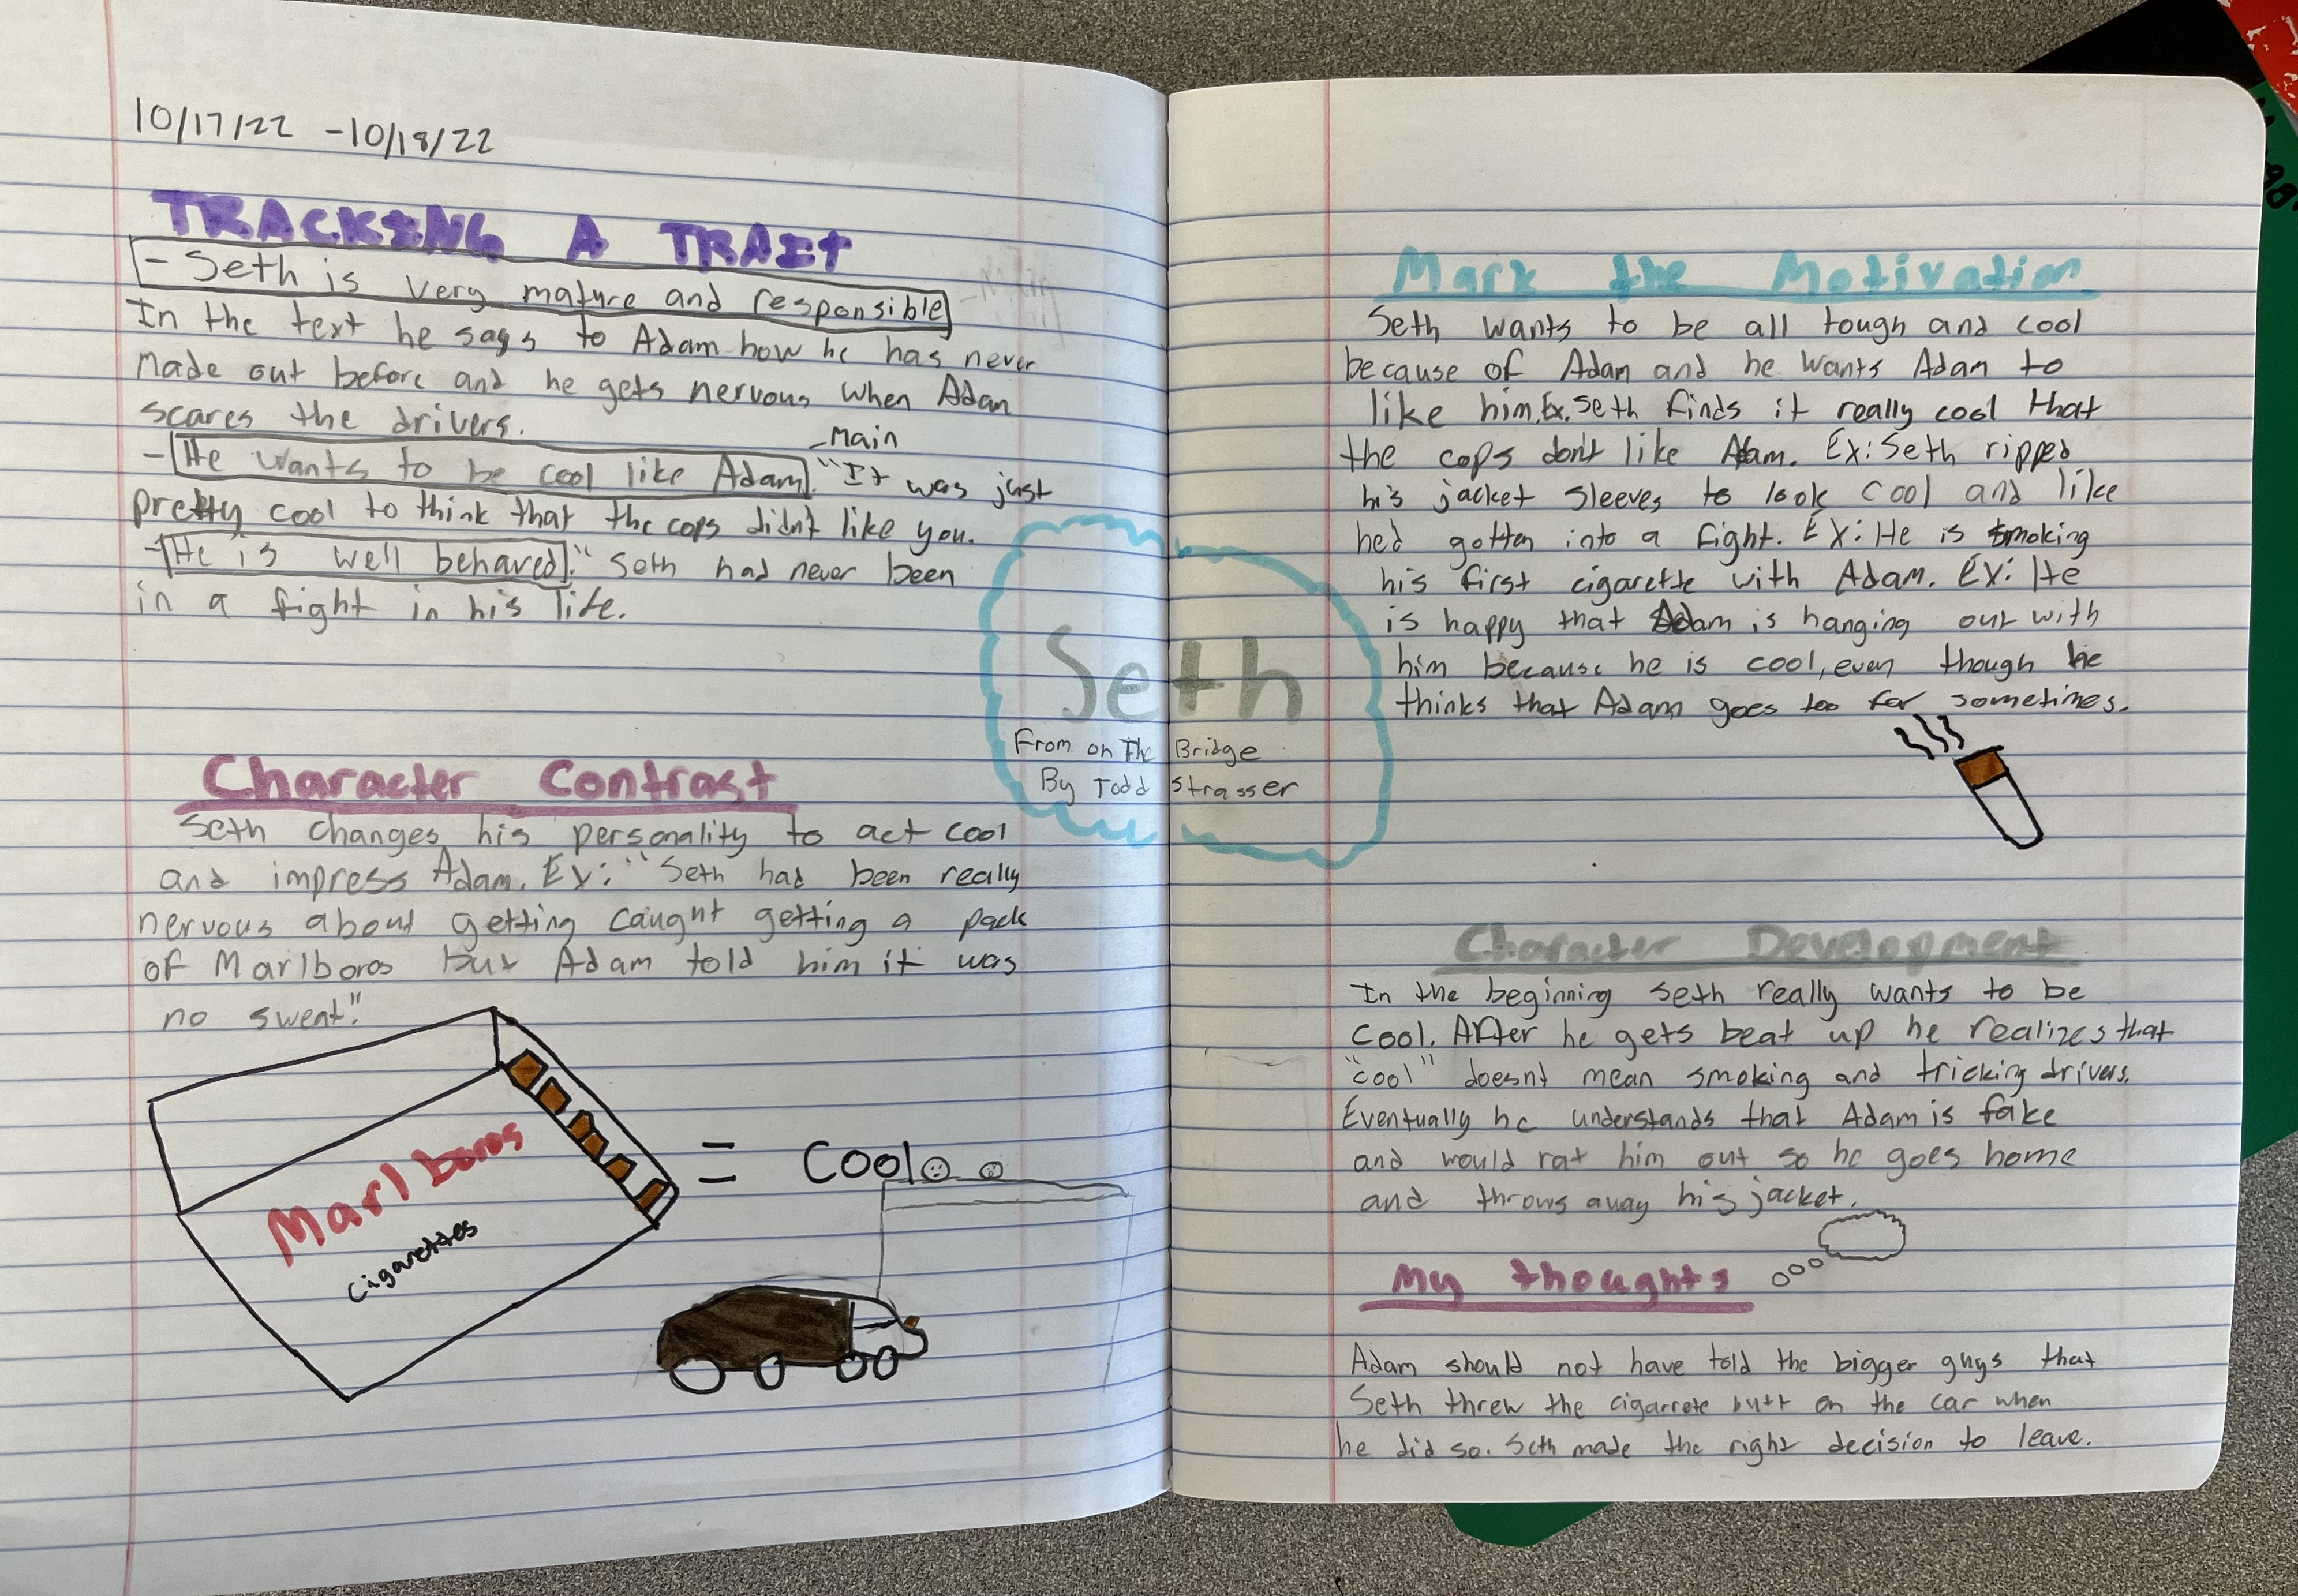 10/17/22 -10/18/22
TRACKING A TRAIT
- Seth is very mature and responsible
In the text he says to Adam how he has never
made out before and he gets nervous when Adam
scares the drivers.
- Main
- He wants to be cool like Adam. "It was just
pretty cool to think that the cops didn't like you.
- He is well behaved." Seth had never been
in a fight in his life.
Character Contrast
Seth changes his personality to act cool
and impress Adam. Ex: "Seth had been really
nervous about getting caught getting a pack
of Marlboros but Adam told him it was
no sweat."
Marlboros
cigarettes
= Cool
Seth
From on The Bridge
By Todd Strasser
Mark the Motivation
Seth wants to be all tough and cool
because of Adam and he wants Adam to
like him. Ex. Seth finds it really cool that
the cops don't like Adam. Ex: Seth ripped
his jacket sleeves to look cool and like
he'd gotten into a fight. Ex: He is smoking
his first cigarette with Adam. Ex: He
is happy that Adam is hanging out with
him because he is cool, even though he
thinks that Adam goes too far sometimes.
Character Development
In the beginning Seth really wants to be
cool. After he gets beat up he realizes that
"cool" doesnt mean smoking and tricking drivers.
Eventually he understands that Adam is fake
and would rat him out so he goes home
and throws away his jacket.
My thoughts
Adam should not have told the bigger guys that
Seth threw the cigarrete butt on the car when
he did so. Seth made the right decision to leave.